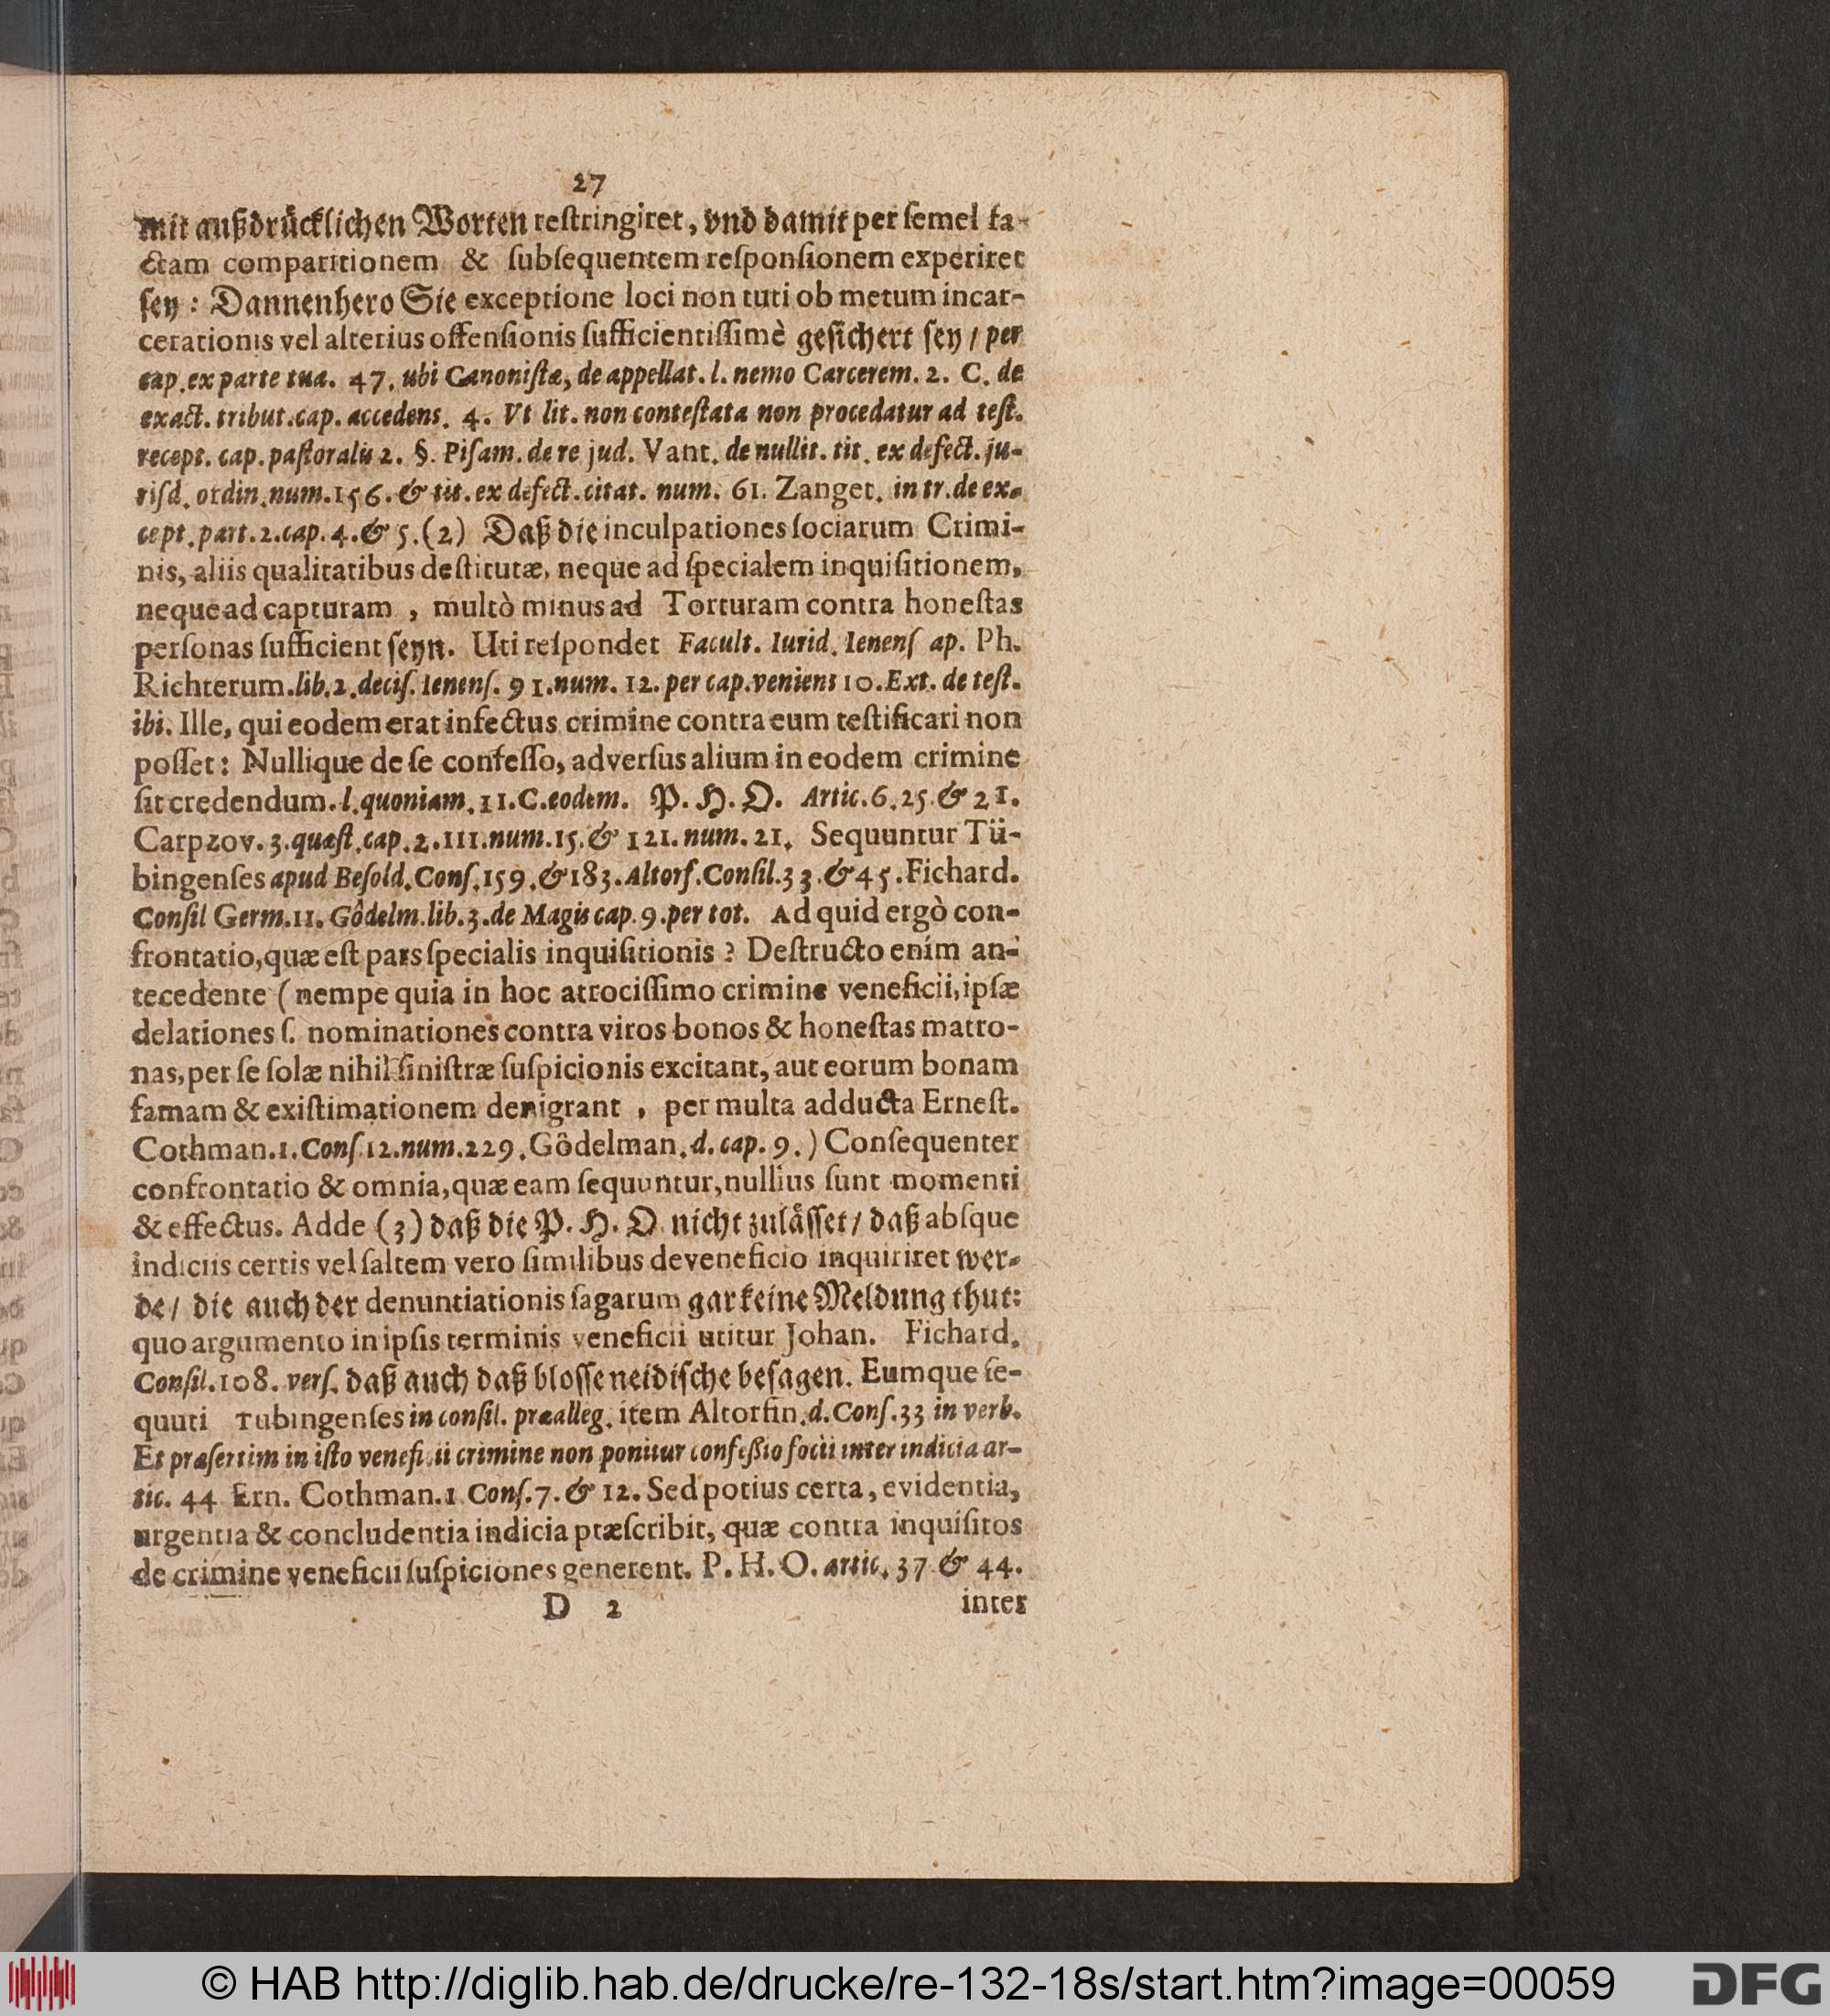 27
mit außdrücklichen Worten reſtringiret, vnd damit per ſemel fa-
ctam comparitionem & ſubſequentem reſponſionem experiret
ſey: Dannenhero Sie exceptione loci non tuti ob metum incar-
cerationis vel alterius offenſionis ſufficientiſſimè geſichert ſey / per
cap. ex parte tua. 47. ubi Canoniſtæ, de appellat. l. nemo Carcerem. 2. C. de
exact. tribut. cap. accedens. 4. Vt lit. non conteſtata non procedatur ad teſt.
recept. cap. paſtoralis 2. §. Piſam. de re jud. Vant. de nullit. tit. ex defect. ju-
riſd. ordin. num. 156. & tit. ex defect. citat. num. 61. Zanger. in tr. de ex-
cept. part. 2. cap. 4. & 5. (2) Daß die inculpationes ſociarum Crimi-
nis, aliis qualitatibus deſtitutæ, neque ad ſpecialem inquiſitionem,
neque ad capturam , multò minus ad Torturam contra honeſtas
perſonas ſufficient ſeyn. Uti reſpondet Facult. Iurid. Ienenſ ap. Ph.
Richterum. lib. 2. deciſ. Ienenſ. 91. num. 12. per cap. veniens 10. Ext. de teſt.
ibi. Ille, qui eodem erat infectus crimine contra eum teſtificari non
poſſet: Nullique de ſe confeſſo, adverſus alium in eodem crimine
ſit credendum. l. quoniam. 11. C. eodem. P. H. O. Artic. 6. 25. & 21.
Carpzov. 3. quæſt. cap. 2. 111. num. 15. & 121. num. 21. Sequuntur Tü-
bingenſes apud Beſold. Conſ. 159. & 183. Altorf. Conſil. 33. & 45. Fichard.
Conſil Germ. 11. Gödelm. lib. 3. de Magis cap. 9. per tot. Ad quid ergò con-
frontatio, quæ eſt pars ſpecialis inquiſitionis? Deſtructo enim an-
tecedente (nempe quia in hoc atrociſſimo crimine veneficii, ipſæ
delationes ſ. nominationes contra viros bonos & honeſtas matro-
nas, per ſe ſolæ nihil ſiniſtræ ſuſpicionis excitant, aut eorum bonam
famam & exiſtimationem denigrant , per multa adducta Erneſt.
Cothman. 1. Conſ. 12. num. 229. Gödelman. d. cap. 9.) Conſequenter
confrontatio & omnia, quæ eam ſequuntur, nullius ſunt momenti
& effectus. Adde (3) daß die P. H. O. nicht zuläſſet / daß abſque
indiciis certis vel ſaltem vero ſimilibus de veneficio inquiriret wer-
de / die auch der denuntiationis ſagarum gar keine Meldung thut:
quo argumento in ipſis terminis veneficii utitur Johan. Fichard.
Conſil. 108. verſ. daß auch daß bloſſe neidiſche beſagen. Eumque ſe-
quuti Tubingenſes in conſil. præalleg. item Altorfin. d. Conſ. 33 in verb.
Et præſertim in iſto veneficii crimine non ponitur confeßio ſocii inter indicia ar-
tic. 44 Ern. Cothman. 1 Conſ. 7. & 12. Sed potius certa, evidentia,
urgentia & concludentia indicia præſcribit, quæ contra inquiſitos
de crimine veneficii ſuſpiciones generent. P. H. O. artic. 37 & 44.
D 2 inter
© HAB http://diglib.hab.de/drucke/re-132-18s/start.htm?image=00059
DFG